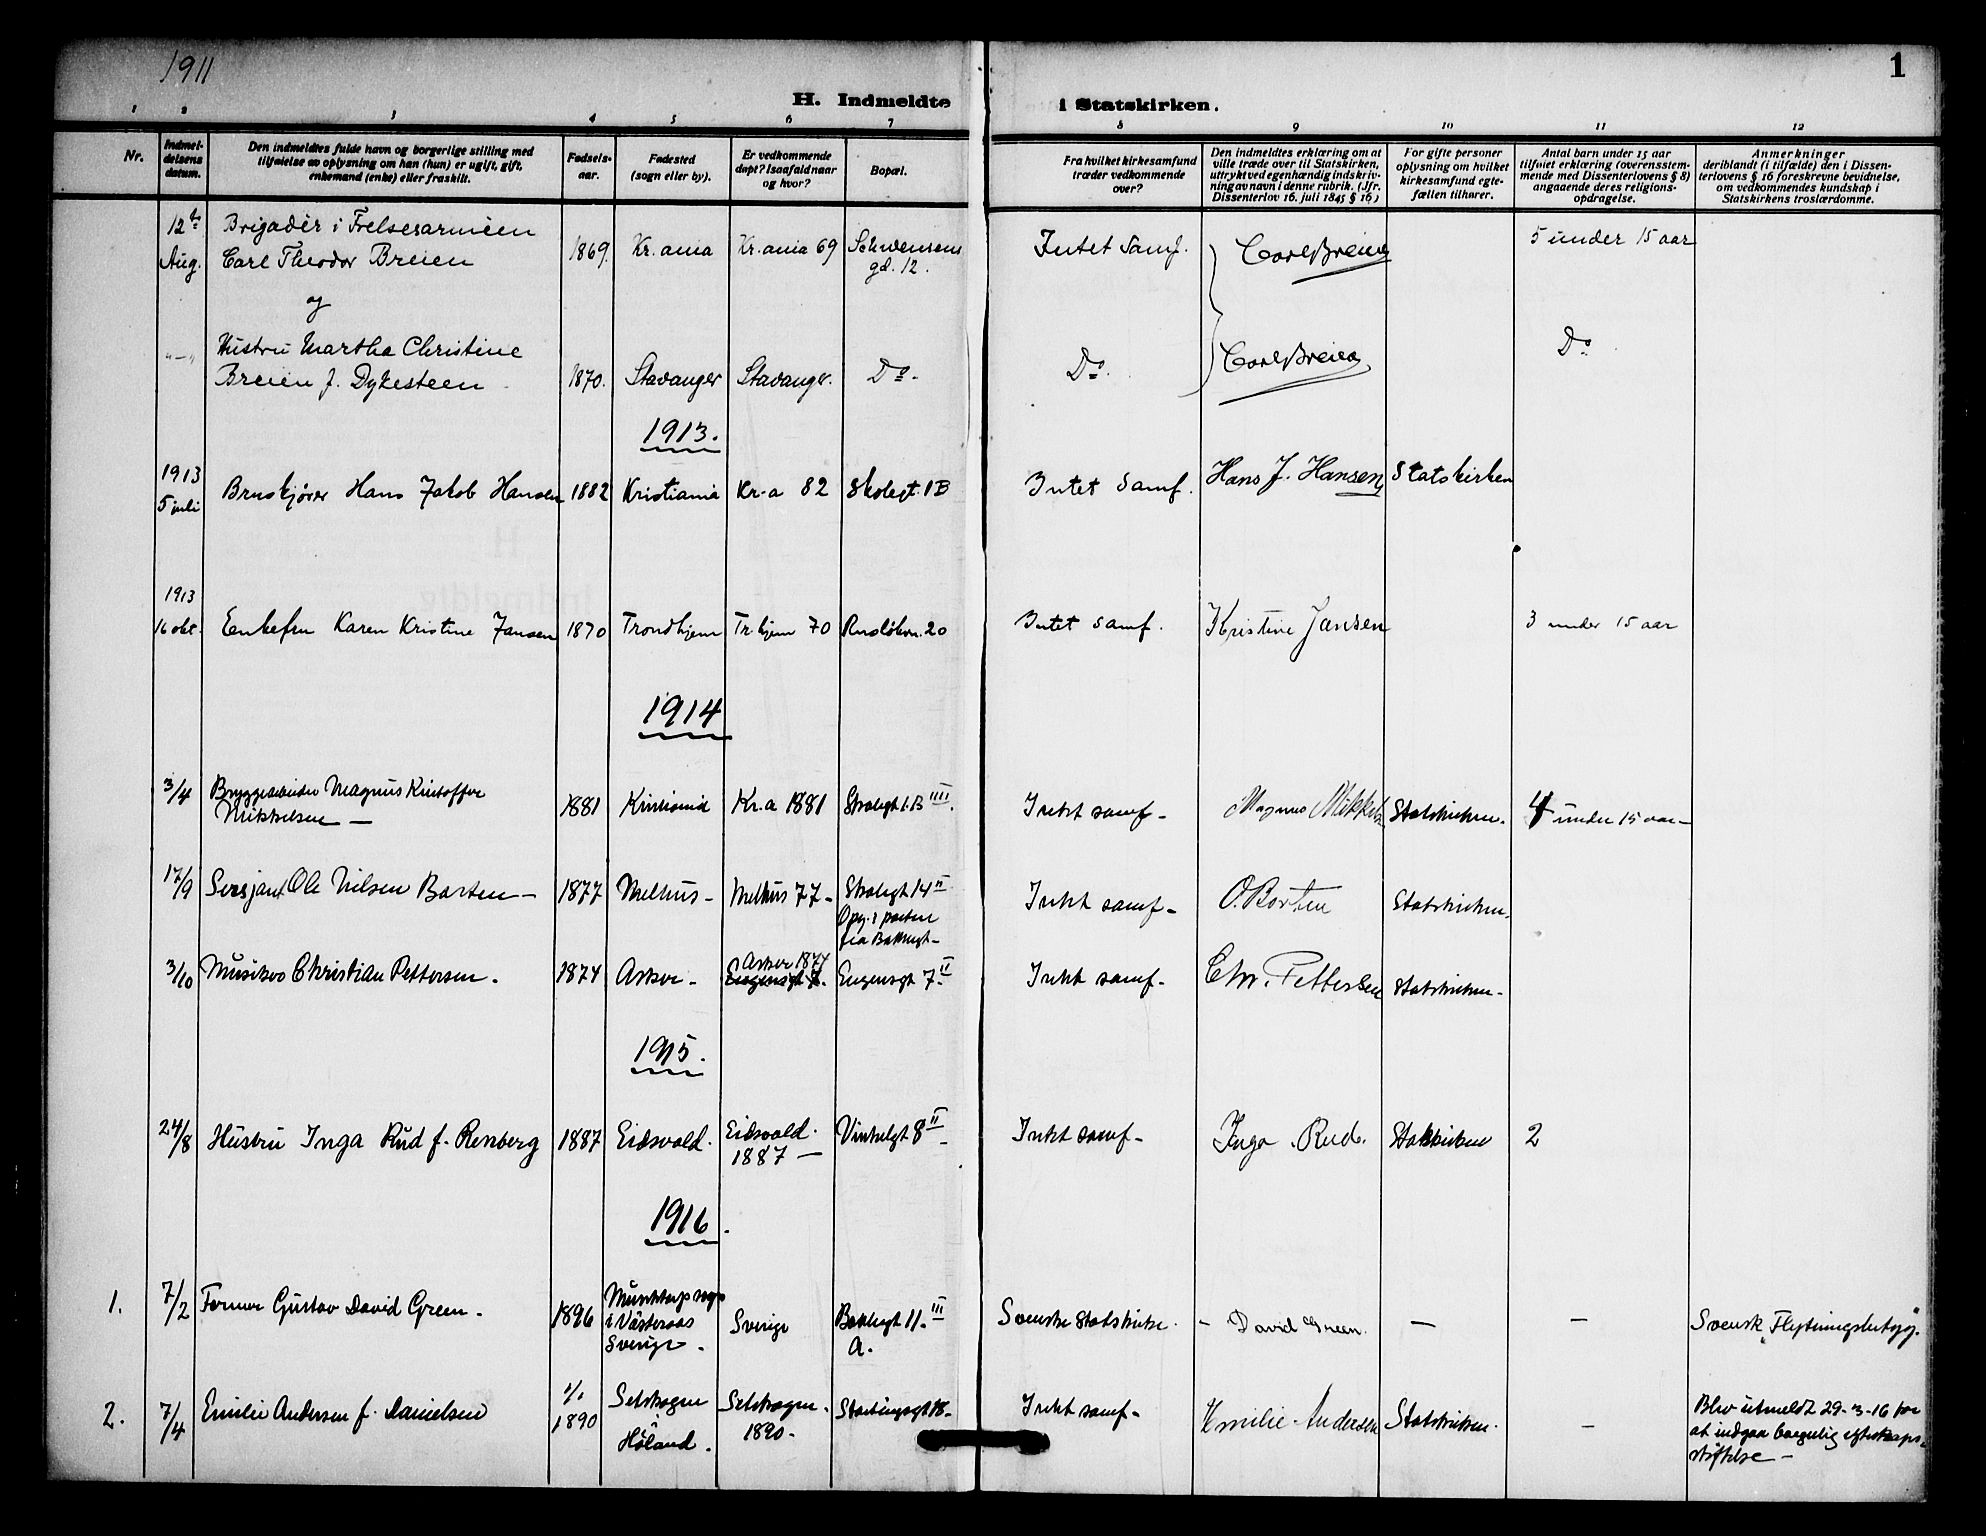 1911
1
H. Indmeldte i Statskirken.
1 2 3 4 5 6 7 8 9 10 11 12
Nr.
Indmel-
delsens
datum.
Den indmeldtes fulde navn og borgerlige stilling med
tilføielse av oplysning om han (hun) er ugift, gift,
enkemand (enke) eller fraskilt.
Fødsels-
aar.
Fødested
(sogn eller by).
Er vedkommende
døpt? Isaafald naar
og hvor?
Bopæl.
Fra hvilket kirkesamfund
træder vedkommende
over?
Den indmeldtes erklæring om at
ville træde over til Statskirken,
uttrykt ved egenhændig indskriv-
ning av navn i denne rubrik. (Jfr.
Dissenterlov 16. juli 1845 § 16)
For gifte personer
oplysning om hvilket
kirkesamfund egte-
fællen tilhører.
Antal barn under 15 aar
tilføiet erklæring (overensstem-
mende med Dissenterlovens § 8)
angaaende deres religions-
opdragelse.
Anmerkninger
deriblandt (i tilfælde) den i Dissen-
terlovens § 16 foreskrevne bevidnelse,
om vedkommendes kundskap i
Statskirkens troslærdomme.
12te
Aug.
Brigadèr i Frelsesarmèen
Carl Theodor Breien
1869.
Kr.ania
Kr.ania 69
Schwensens
gd. 12.
Intet Samf.
Carl Breien
5 under 15 aar
og
"—"
Hustru Martha Christine
Breien f. Dykesteen
1870.
Stavanger
Stavanger.
Do.
Do.
Carl Breien
Do
1913.
1913
5 juli
Bruskjører Hans Jakob Hansen
1882
Kristiania
Kr.a 82
Skolegt. 1B
Intet Samf.
Hans J. Hansen
Statskirken
1913
16 okt.
Enkefru Karen Kristine Jansen
1870
Trondhjem
Tr.hjem 70
20
Intet samf.
Kristine Jansen
3 under 15 aar
1914
3/4
Bryggearbeider Magnus Kristoffer
Mikkelsen —
1881
Kristiania
Kr.a 1881
Skolegt 1.B IIII.
Intet samf -
Magnus Mikkelsen
Statskirken.
4 under 15 aar -
17/9
Sersjant Ole Nilsen Barten —
1877
Melhus -
Melhus 77 -
Skolegt 14 II
Opg. i posten
fra Bakkegt -
Intet samf -
O. Borten
Statskirken.
3/10
Musiker Christian Pettersen.
1874
Asker -
Asker 1874
Eugensgt 7.
Eugensgt 7 II
Intet samf -
Chr. Pettersen
Statskirken -
1915.
24/8
Hustru Inga Rud f. Renberg
1887
Eidsvold.
Eidsvold.
1887 —
Vinkelgt 8 II -
Intet samf -
Inga Rud.
Statskirken
2
1916.
1.
7/2
Former Gustav David Green -
1896
Munktorp sogn
i Västeraas
Sverige -
Sverige
Bakkegt 11. III
A.
Svenske Statskirke.
- David Green.
—
—
Svensk Flytningsbetyg.
2.
7/4
Emilie Andersen f. Danielsen
1/1
1890
Setskogen
Høland.
Setskogen -
1890 -
18 -
Intet samf -
Emilie Andersen
Statskirken.
—
Blev utmeldt 29-3-16 for
at indgaa borgerlig egteskaps-
stiftelse -